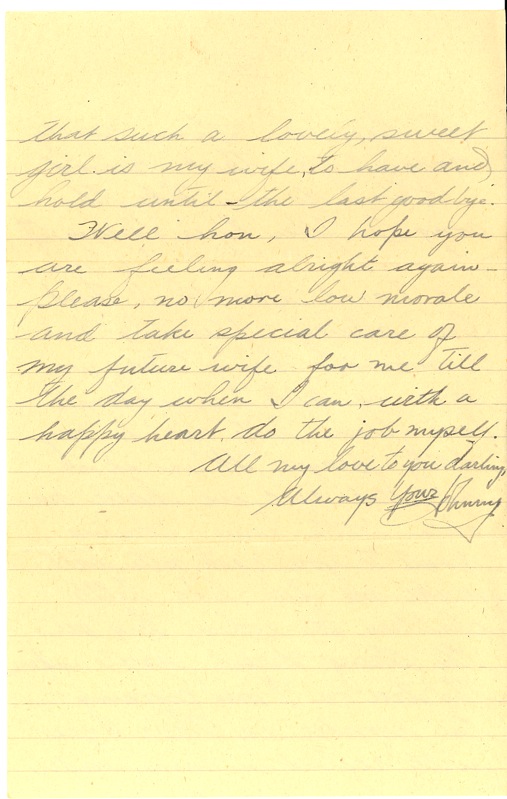 that such a lovely, sweet
girl is my wife, to have and
hold until the last goodbye.
Well hon, I hope you
are feeling alright again -
please, no more low morale
and take special care of
my future wife for me till
the day when I can, with a
happy heart, do the job myself.
All my love to you darling,
Always Your Johnny